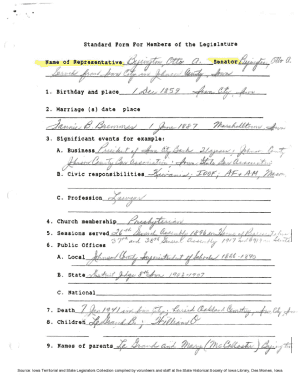 Standard Form For Members of the Legislature
Name of Representative Byington, Otto A. Senator Byington, Otto A.
Served from Iowa City and Johnson County, Iowa
1. Birthday and place 1 Dec 1859 Iowa City, Iowa
2. Marriage (s) date place
Fannie B. 1 June 1887 Marshalltown Iowa
3. Significant events for example:
A. Business President of Iowa City; Johnson County
Johnson County Bar Association; Iowa State Bar Association
B. Civic responsibilities Kiwanis; IOOF; AF+AM, Mason
C. Profession Lawyer
4. Church membership Presbyterian
5. Sessions served 26th General Assembly 1896
37th and 38th General Assembly 1917
6. Public Offices
A. Local Johnson County Superintendent of Schools 1886-1890
B. State District Judge 8th 1903-1907
C. National
7. Death 7 Jan 1941 Iowa City, buried Oakland Cemetery, Iowa City, Iowa
8. Children LeGrand B.; William O
9. Names of parents Le Grand and Mary (McCollister) Byington
Source: Iowa Territorial and State Legislators Collection compiled by volunteers and staff at the State Historical Society of Iowa Library, Des Moines, Iowa.